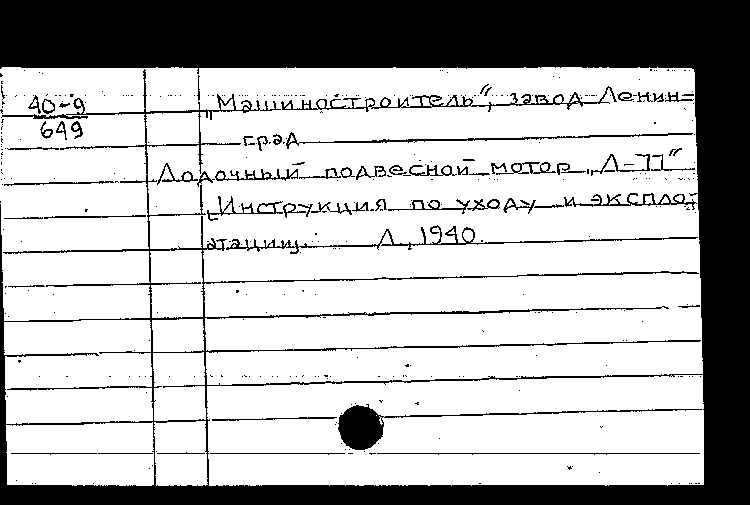 40-9
649
„Машиностроитель“, завод Ленин=
град
Лодочный подвесной мотор „Л-
[Инструкция по уходу и эксплоа-
атации]. Л., 1940.